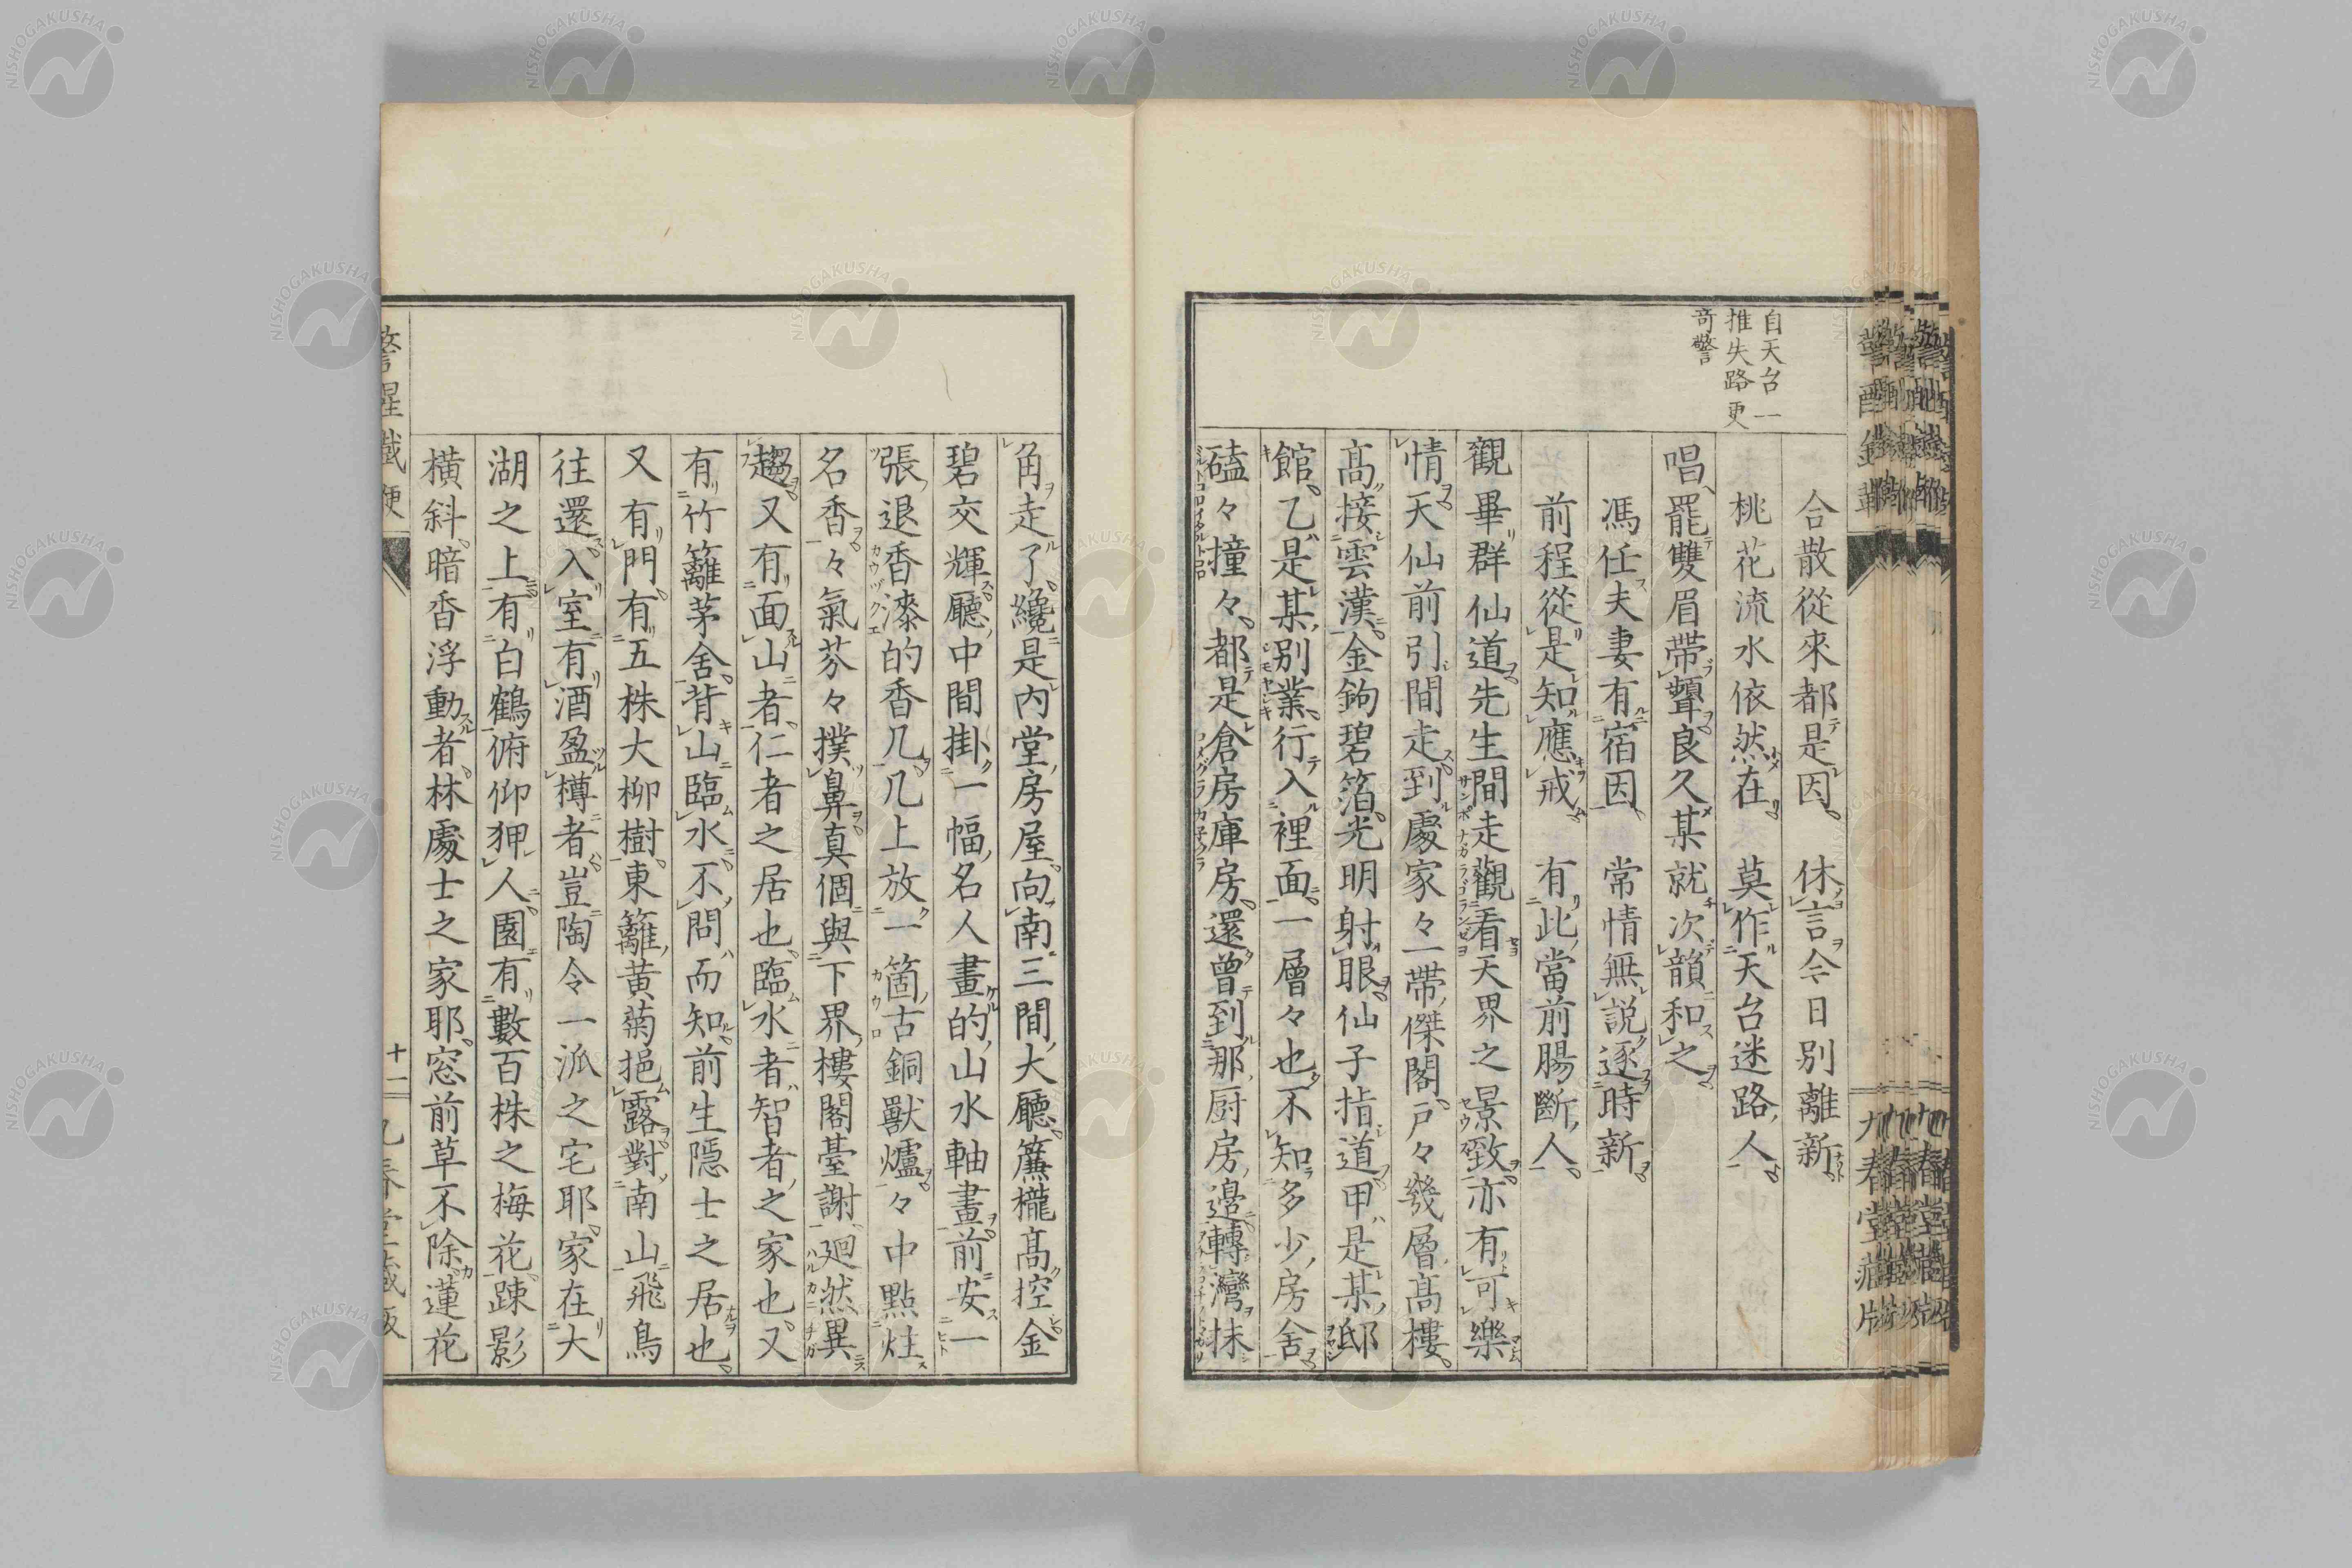 自天台一
推失路更
奇警
合散從來都是因　休言今日別離新
桃花流水依然在　莫作天台迷路人
唱罷雙眉帶顰良久某就次韻和之
馮任夫妻有宿因　常情無說逐時新
前程從是知應戒　有此當前腸斷人
觀畢群仙道先生間走觀看天界之景致亦有可樂
情天仙前引間走到處家々一帶傑閣戶々幾層高樓
高接雲漢金鉤碧箔光明射眼仙子指道甲是某邸
館乙是某別業行入裡面一層々也不知多少房舍
磕々撞々都是倉房庫房還曾到那厨房邊轉灣抹
角走了纔是內堂房屋向南三間大廳簾櫳高控金
碧交輝廳中間掛一幅名人畫的山水軸畫前安一
張退香漆的香几几上放一箇古銅獸爐々中點炷
名香々氣芬々撲鼻真個與下界樓閣臺謝廻然異
趨又有面山者仁者之居也臨水者智者之家也又
有竹籬茅舍背山臨水不問而知前生隱士之居也
又有門有五株大柳樹東籬黃菊挹露對南山飛鳥
往還入室有酒盈樽者豈陶令一派之宅耶家在大
湖之上有白鶴俯仰狎人園有數百株之梅花踈影
橫斜暗香浮動者林處士之家耶窓前草不除蓮花
十二
NISHOGAKUSHA